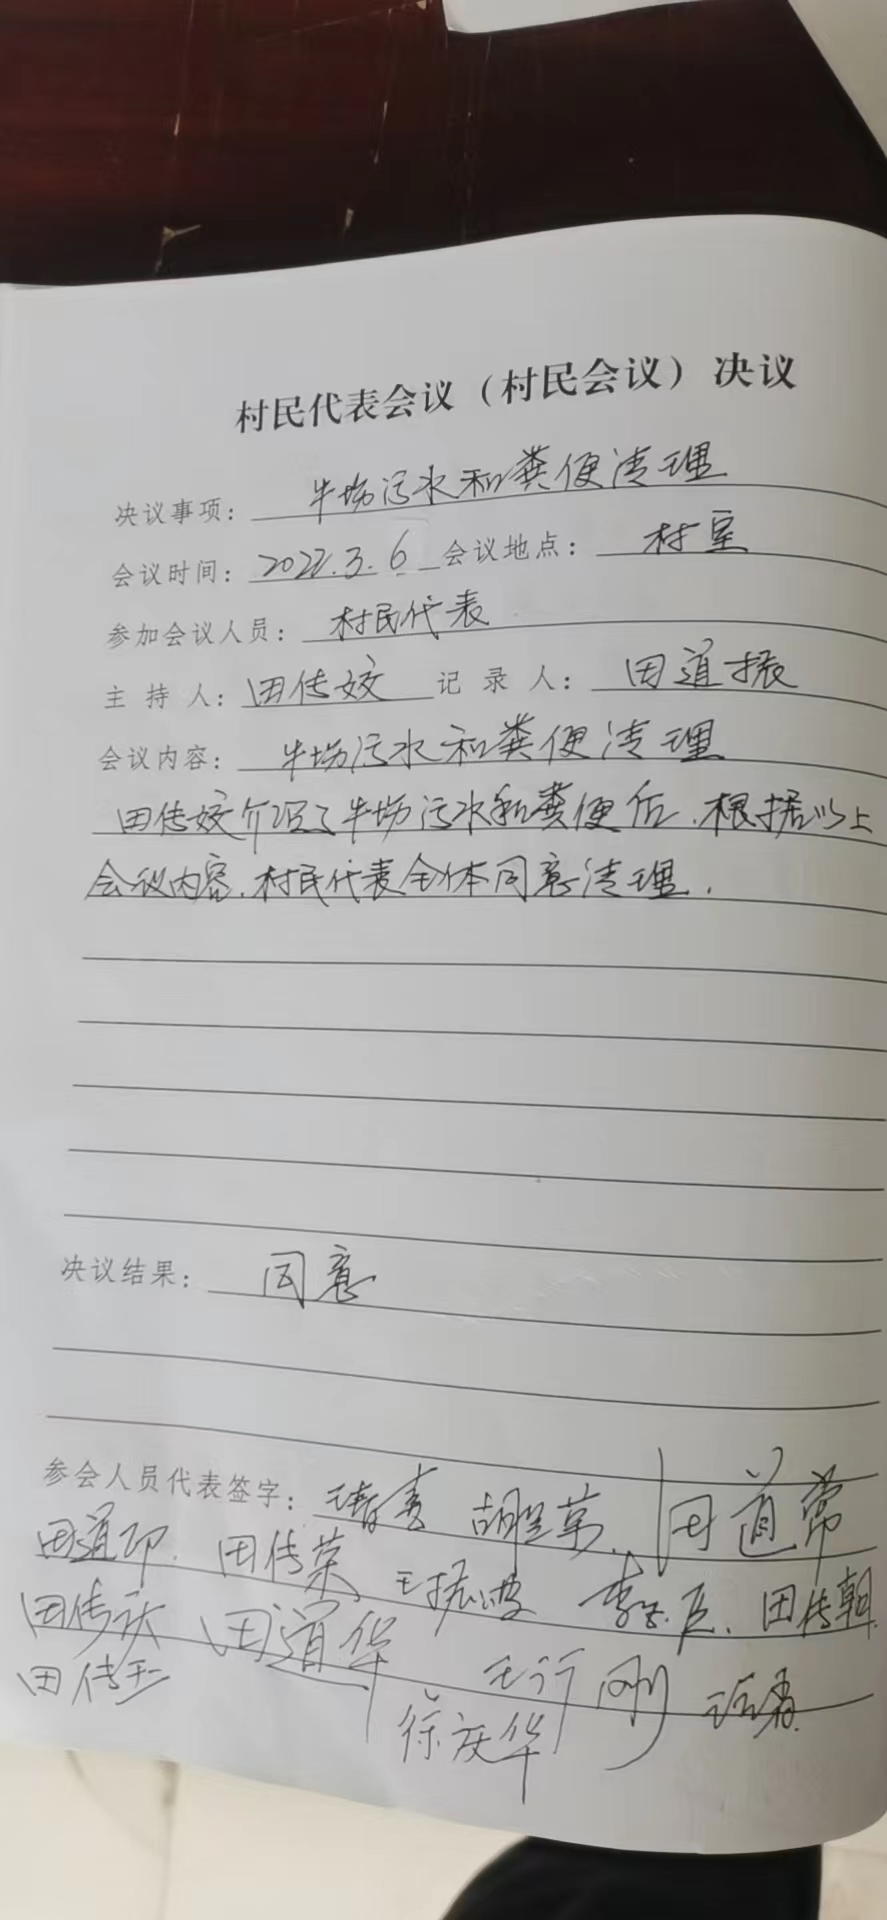 村民代表会议（村民会议）决议
决议事项：牛场污水和粪便清理
会议时间：2022.3.6 会议地点：村室
参加会议人员：村民代表
主持人：田传姣 记录人：田道振
会议内容：牛场污水和粪便清理
田传姣介绍了牛场污水和粪便后，根据以上
会议内容，村民代表全体同意清理.
决议结果：同意
参会人员代表签字： 田道常
田道印. 田传荣 王振波 田传朝
田传庆 田道华
田传玉 王行刚
徐庆华